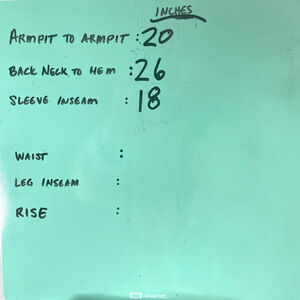 INCHES
ARMPIT TO ARMPIT : 20
BACK NECK TO HEM : 26
SLEEVE INSEAM : 18
WAIST :
LEG INSEAM :
RISE :